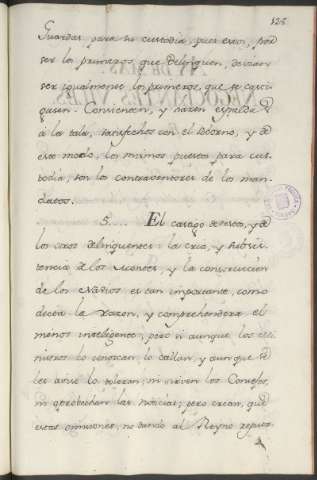 123
Guardas para su custodia, pues estos, por
ser los primeros, que delinquen, devian
ser igualmente los primeros, que se casti
quien. Convienen, y hacen espalda
à la tala, satisfechos con el soborno, y de
este modo, los mismos puestos para cus-
todia, son los contraventores de los man-
datos.
5.... El castigo de estos, y de
los otros delinquentes: la cria, y subsis-
tencia de los Montes, y la construccion
de los Navios es tan importante, como
dicta la razon, y comprehenderá el
menos inteligente; pero si aunque los Mi-
nistros lo conocen, lo callan, y aunque
les avise lo toleran; ni sirven los Consejos,
ni aprobechan las noticias; pero crean, que
estas omisiones, no dando al Reyno repues-